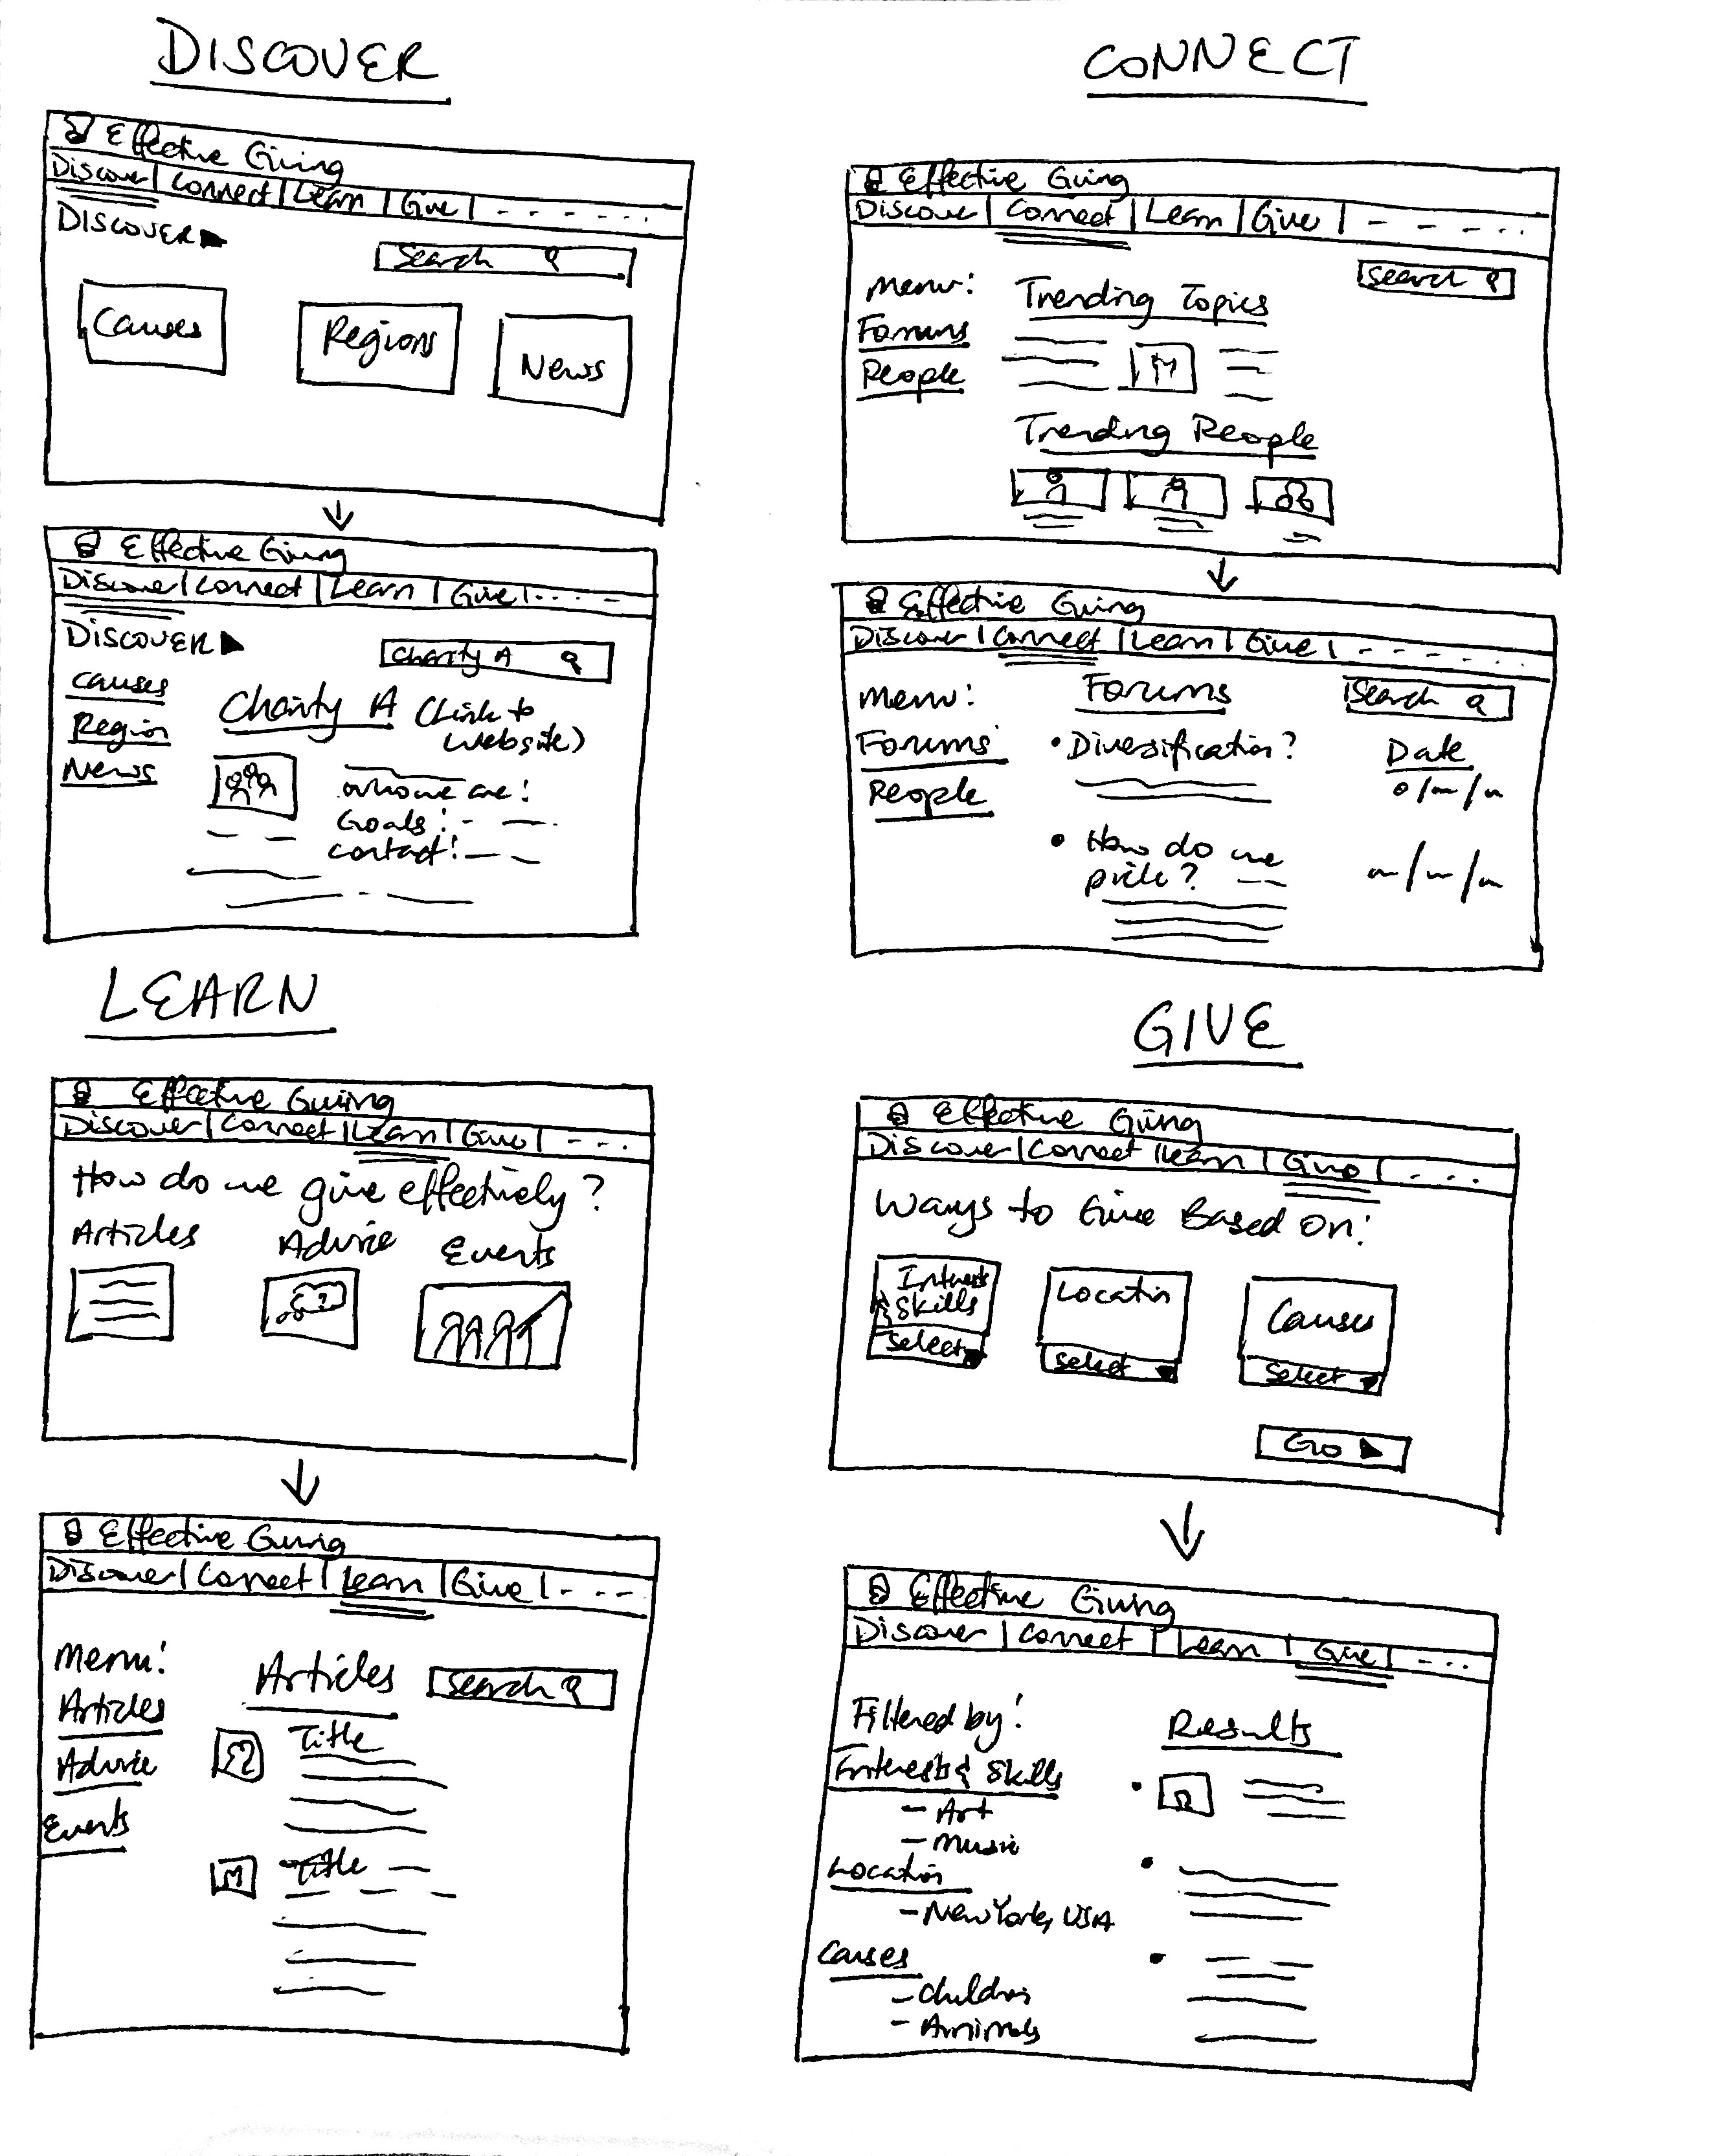 DISCOVER
Effective Giving
Discover | Connect | Learn | Give | - - - - - -
DISCOVER
Search
Causes
Regions
News
Effective Giving
Discover | Connect | Learn | Give | . . . . -
DISCOVER
Charity A
Causes
Region
News
Charity A (Link to
website)
who we are:
Goals: - -
Contact: - -
CONNECT
Effective Giving
Discover | Connect | Learn | Give | - - - - . .
Search
Menu:
Forums
People
Trending Topics
Trending People
Effective Giving
Discover | Connect | Learn | Give | - - - - - .
Menu:
Forums
People
Forums
Search
• Diversification?
Date
• How do we
pick?
LEARN
Effective Giving
Discover | Connect | Learn | Give | - - .
How do we give effectively?
Articles
Advice
Events
?
Effective Giving
Discover | Connect | Learn | Give | - - - -
Menu:
Articles
Advice
Events
Articles
Search
Title
Title
GIVE
Effective Giving
Discover | Connect | Learn | Give | - - - .
Ways to Give Based On:
Interests
& Skills
Select
Location
Select
Causes
Select
Go
Effective Giving
Discover | Connect | Learn | Give | - - . .
Filtered by:
Interests & Skills
- Art
- Music
Location
- New York, USA
Causes
- Children
- Animals
Results